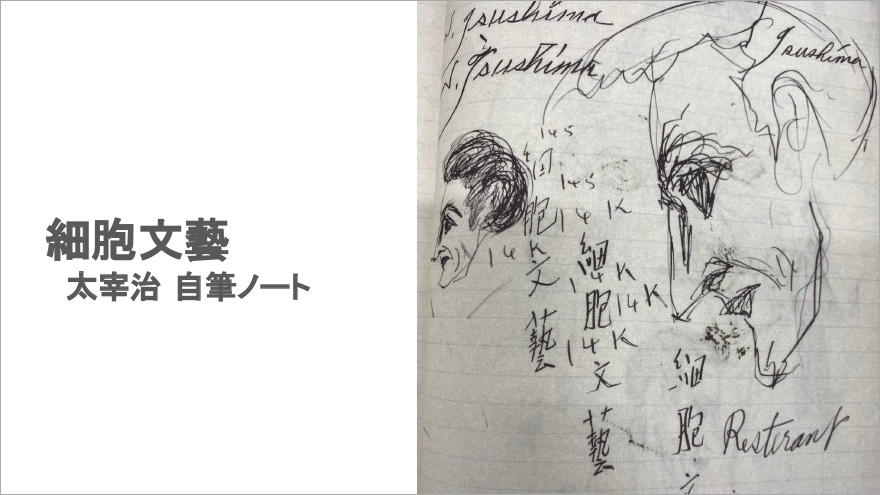 細胞文藝
太宰治 自筆ノート
S. Tsushima
S. Tsushima
S. Tsushima
145
細胞文藝
145
14K
14K
細胞文藝
14K
14K
14K
細胞文
Resterant